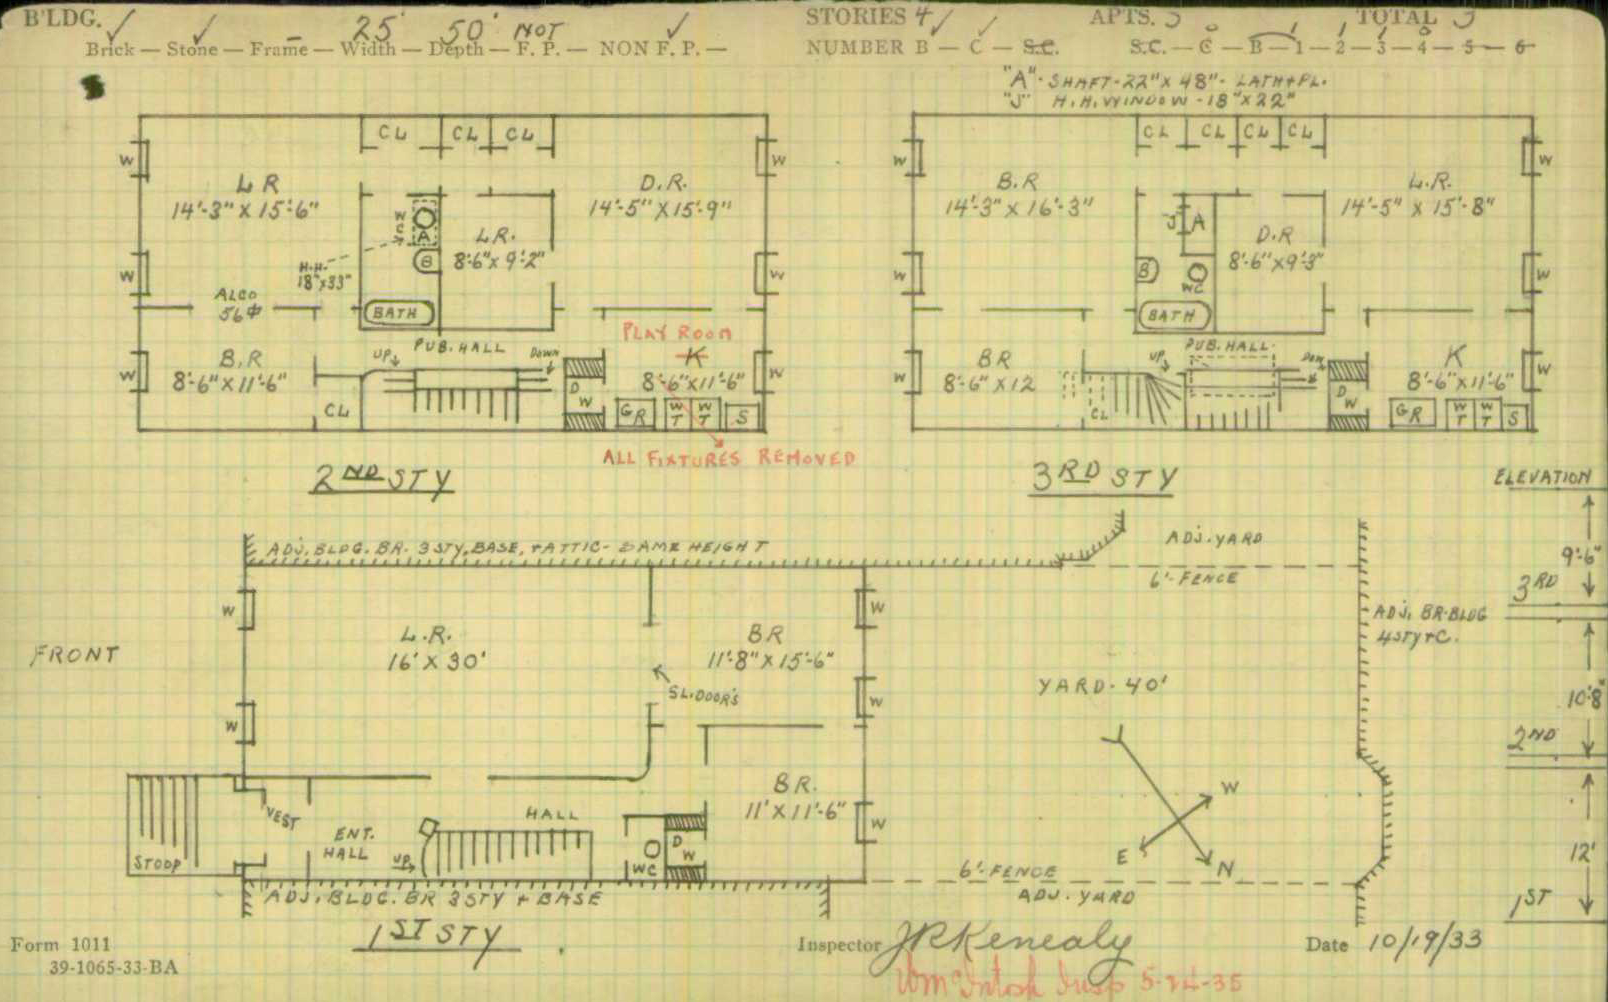 B'LDG. ✓ ✓ 25' 50' NOT ✓ STORIES 4 ✓ APTS. TOTAL
Brick — Stone — Frame — Width — Depth — F. P. — NON F. P. — NUMBER B — C — S.C. S.C. — C — B — 1 — 2 — 3 — 4 — 5 — 6
"A" - SHAFT - 22" X 48" - LATH + PL.
"J" H.H. WINDOW - 18" X 22"
CL CL CL
W W
L R
14'-3" X 15'-6"
D.R.
14'-5" X 15'-9"
WC
A
L.R.
8'-6" X 9'-2"
B
H.H.
18" X 33"
W W
ALCO
56 ⌀
BATH
PLAY ROOM
PUB. HALL
UP
DOWN
B.R
8'-6" X 11'-6"
K
8'-6" X 11'-6"
W W
CL
D W
GR WT WT S
ALL FIXTURES REMOVED
2ND STY
CL CL CL CL
W W
B.R
14'-3" X 16'-3"
L.R.
14'-5" X 15'-8"
J A
D.R
8'-6" X 9'-3"
B
WC
W W
BATH
PUB. HALL
UP
DOWN
BR
8'-6" X 12
K
8'-6" X 11'-6"
W W
CL
D W
GR WT WT S
3RD STY
ELEVATION
9'-6"
3RD
10'8"
2ND
12'
1ST
ADJ. BLDG. BR. 3 STY, BASE, + ATTIC - SAME HEIGHT
ADJ. YARD
6'- FENCE
W W
FRONT
L.R.
16' X 30'
BR
11'-8" X 15'-6"
SL. DOORS
ADJ. BR. BLDG
4 STY + C.
YARD - 40'
W W
BR.
11' X 11'-6"
W
VEST
ENT.
HALL
HALL
UP
STOOP
WC
D W
W
E
N
6'- FENCE
ADJ. YARD
ADJ. BLDG. BR 3 STY + BASE
1ST STY
Form 1011
39-1065-33-BA
Inspector JR Kenealy
Date 10/19/33
Wm McIntosh Insp 5-24-35